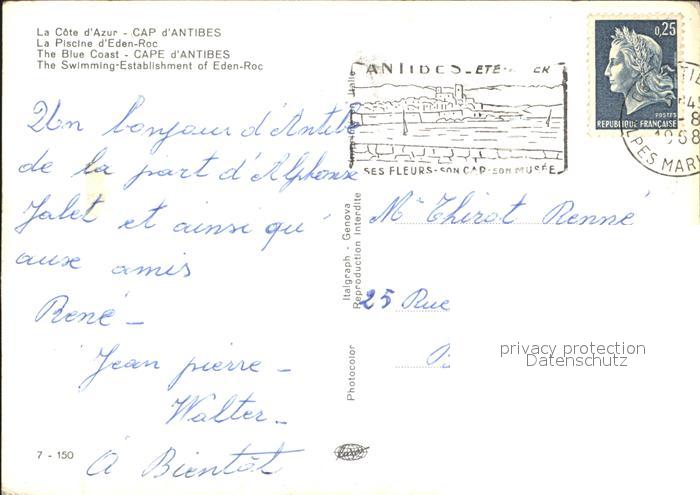 La Côte d'Azur - CAP d'ANTIBES
La Piscine d'Eden-Roc
The Blue Coast - CAPE d'ANTIBES
The Swimming-Establishment of Eden-Roc
Un bonjour d'Antibe
de la part d'Alphonse
Jalet et ainsi qu'
aux amis
René -
Jean pierre -
Walter -
À Bientôt
7 - 150
ANTIBES - ETE - HIVER
SES FLEURS - SON CAP - SON MUSÉE
0,25
POSTES
REPUBLIQUE FRANÇAISE
1968
Italgraph - Genova
Reproduction Interdite
Photocolor
Mr Thirot Renné
25 Rue
privacy protection
Datenschutz